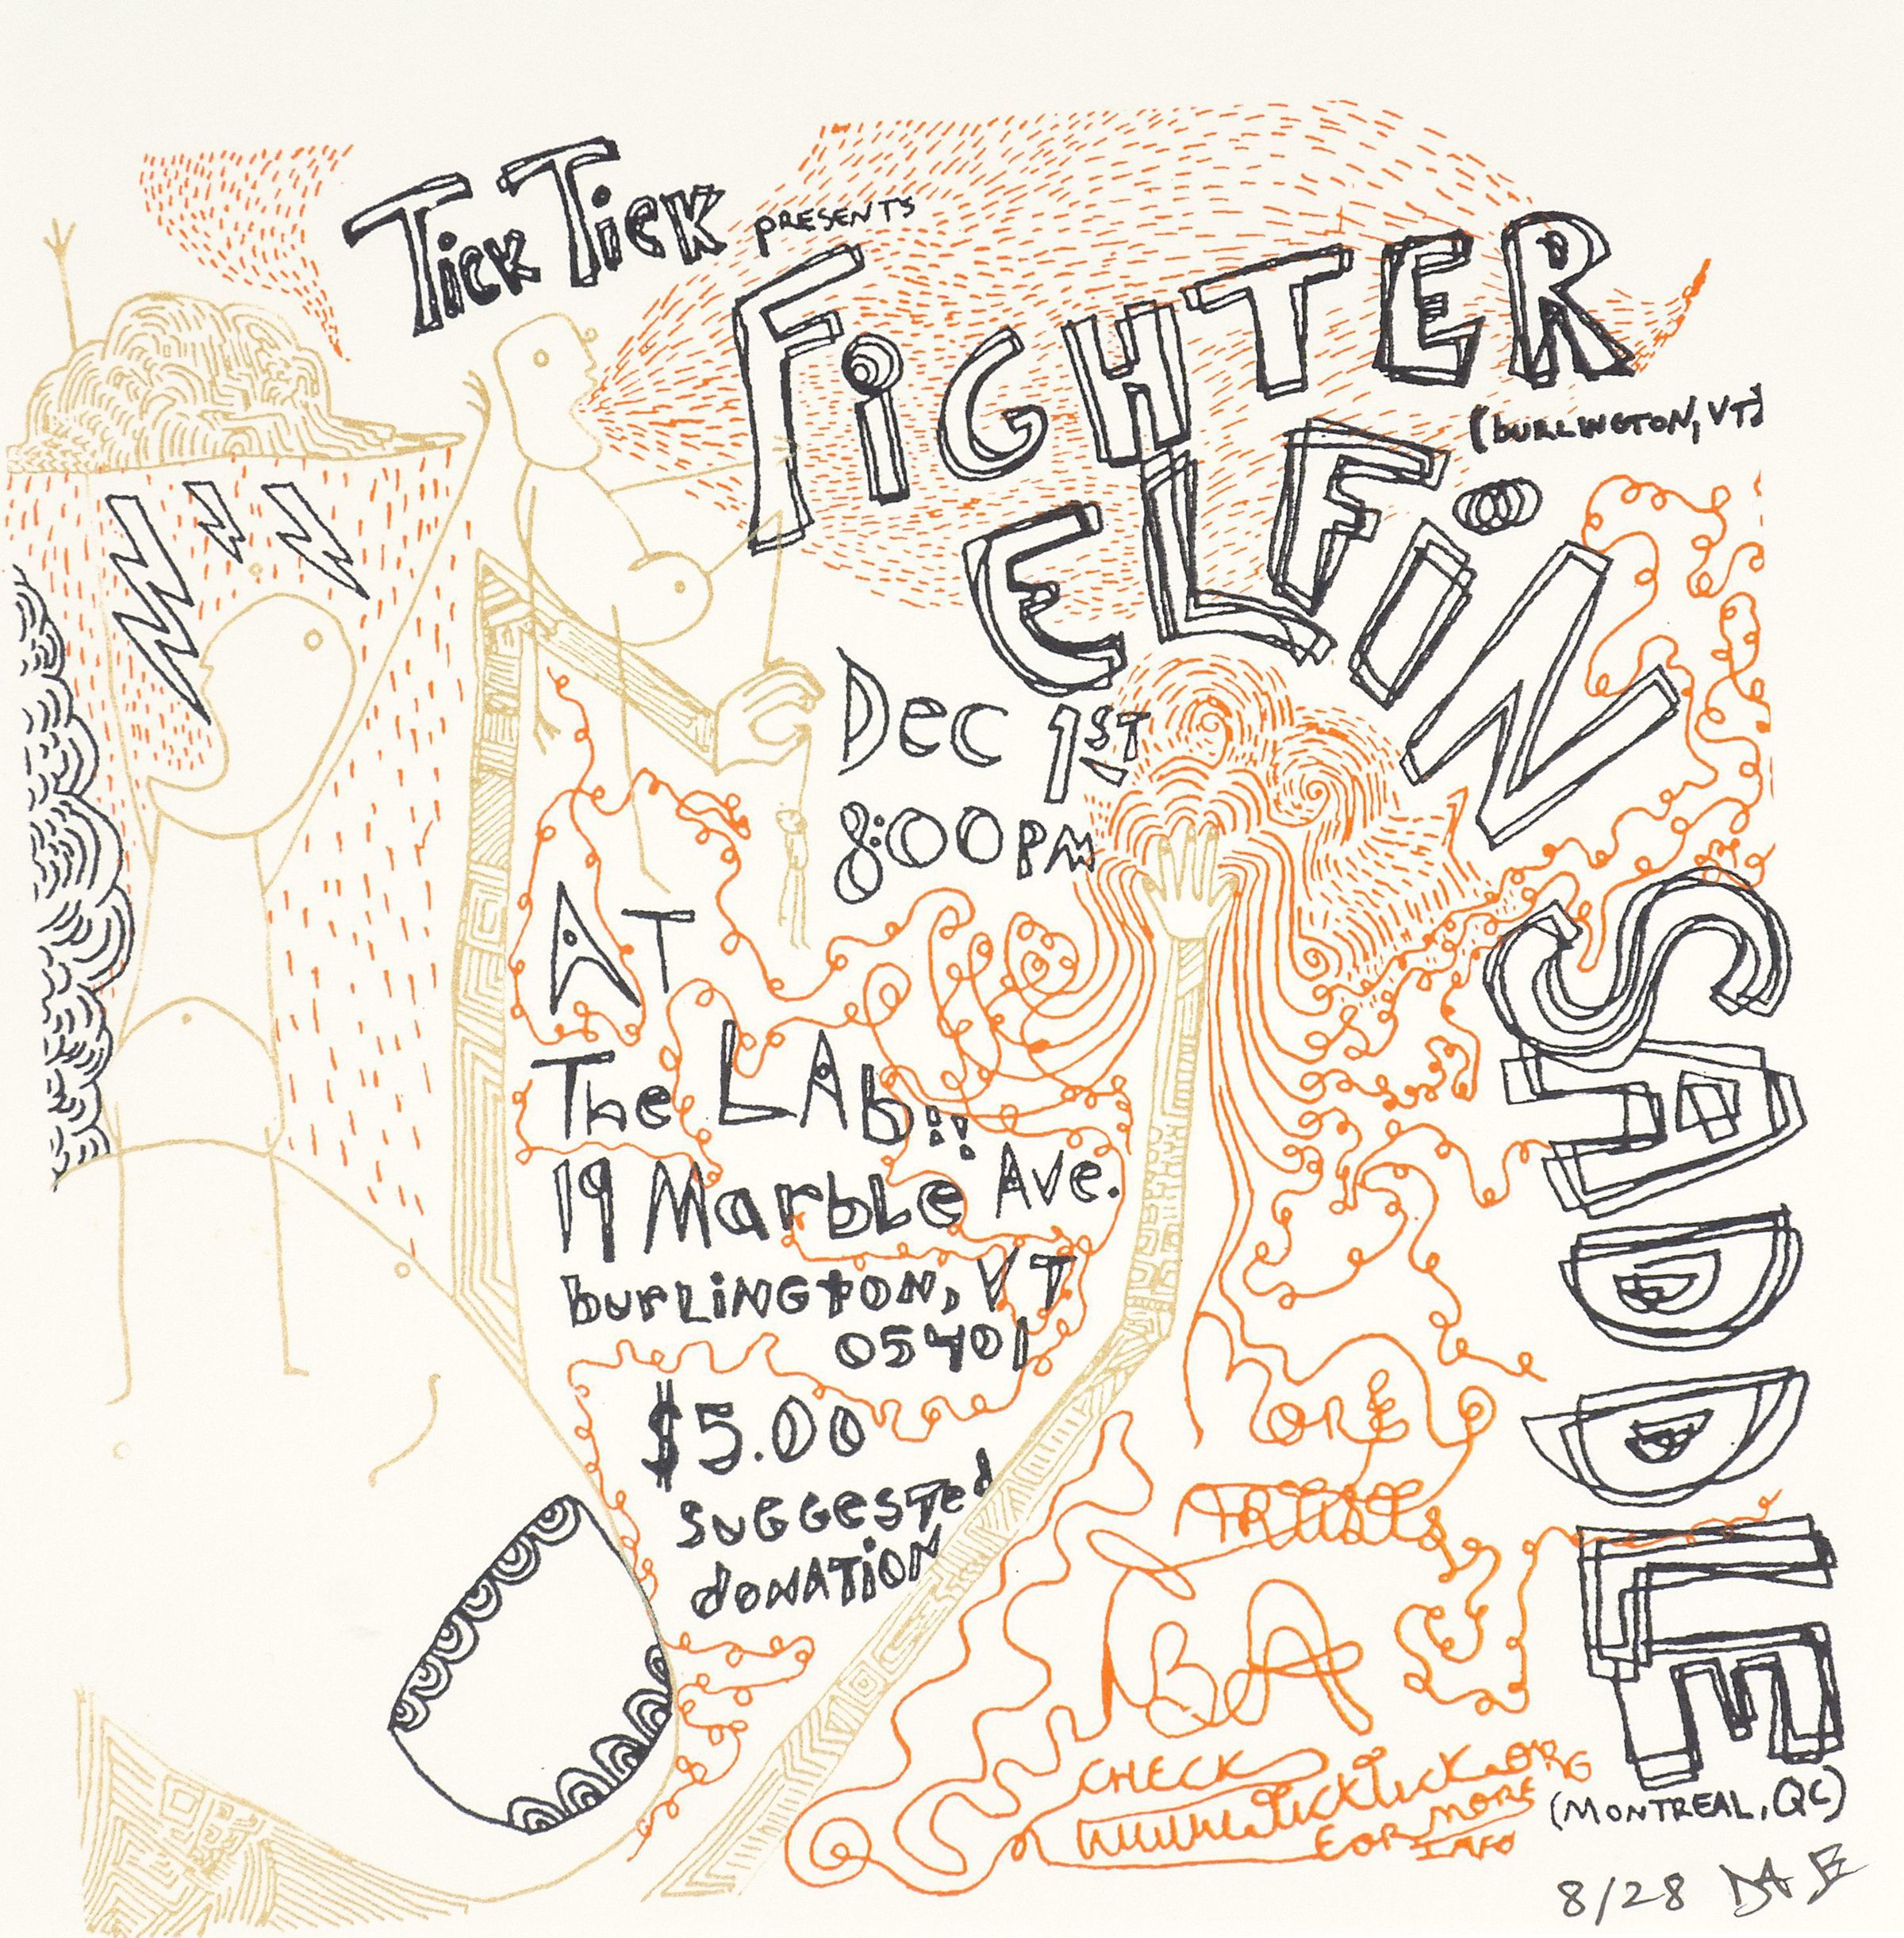 Tick Tick PRESENTS
FiGHTER
(BURLINGTON, VT)
ELFiN
Dec 1ST
8:00PM
AT
The LAb!!
19 MarbLe Ave.
burLiNGTON, VT
05401
$5.00
SuGGesTed
dONATiON
SADDLE
(MONTREAL, QC)
MORE
ARTISTS
TBA
CHECK
WWW.TICKTICK.ORG
FOR MORE
INFO
8/28